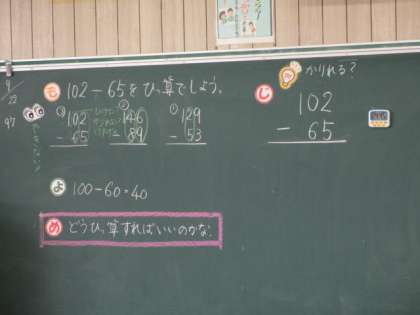 9/22
97
も 102-65をひっ算でしよう。
③ 102 - 65
② 146 - 89
① 129 - 53
よ 100-60=40
め どうひっ算すればいいのかな?
じ かりれる?
102
- 65